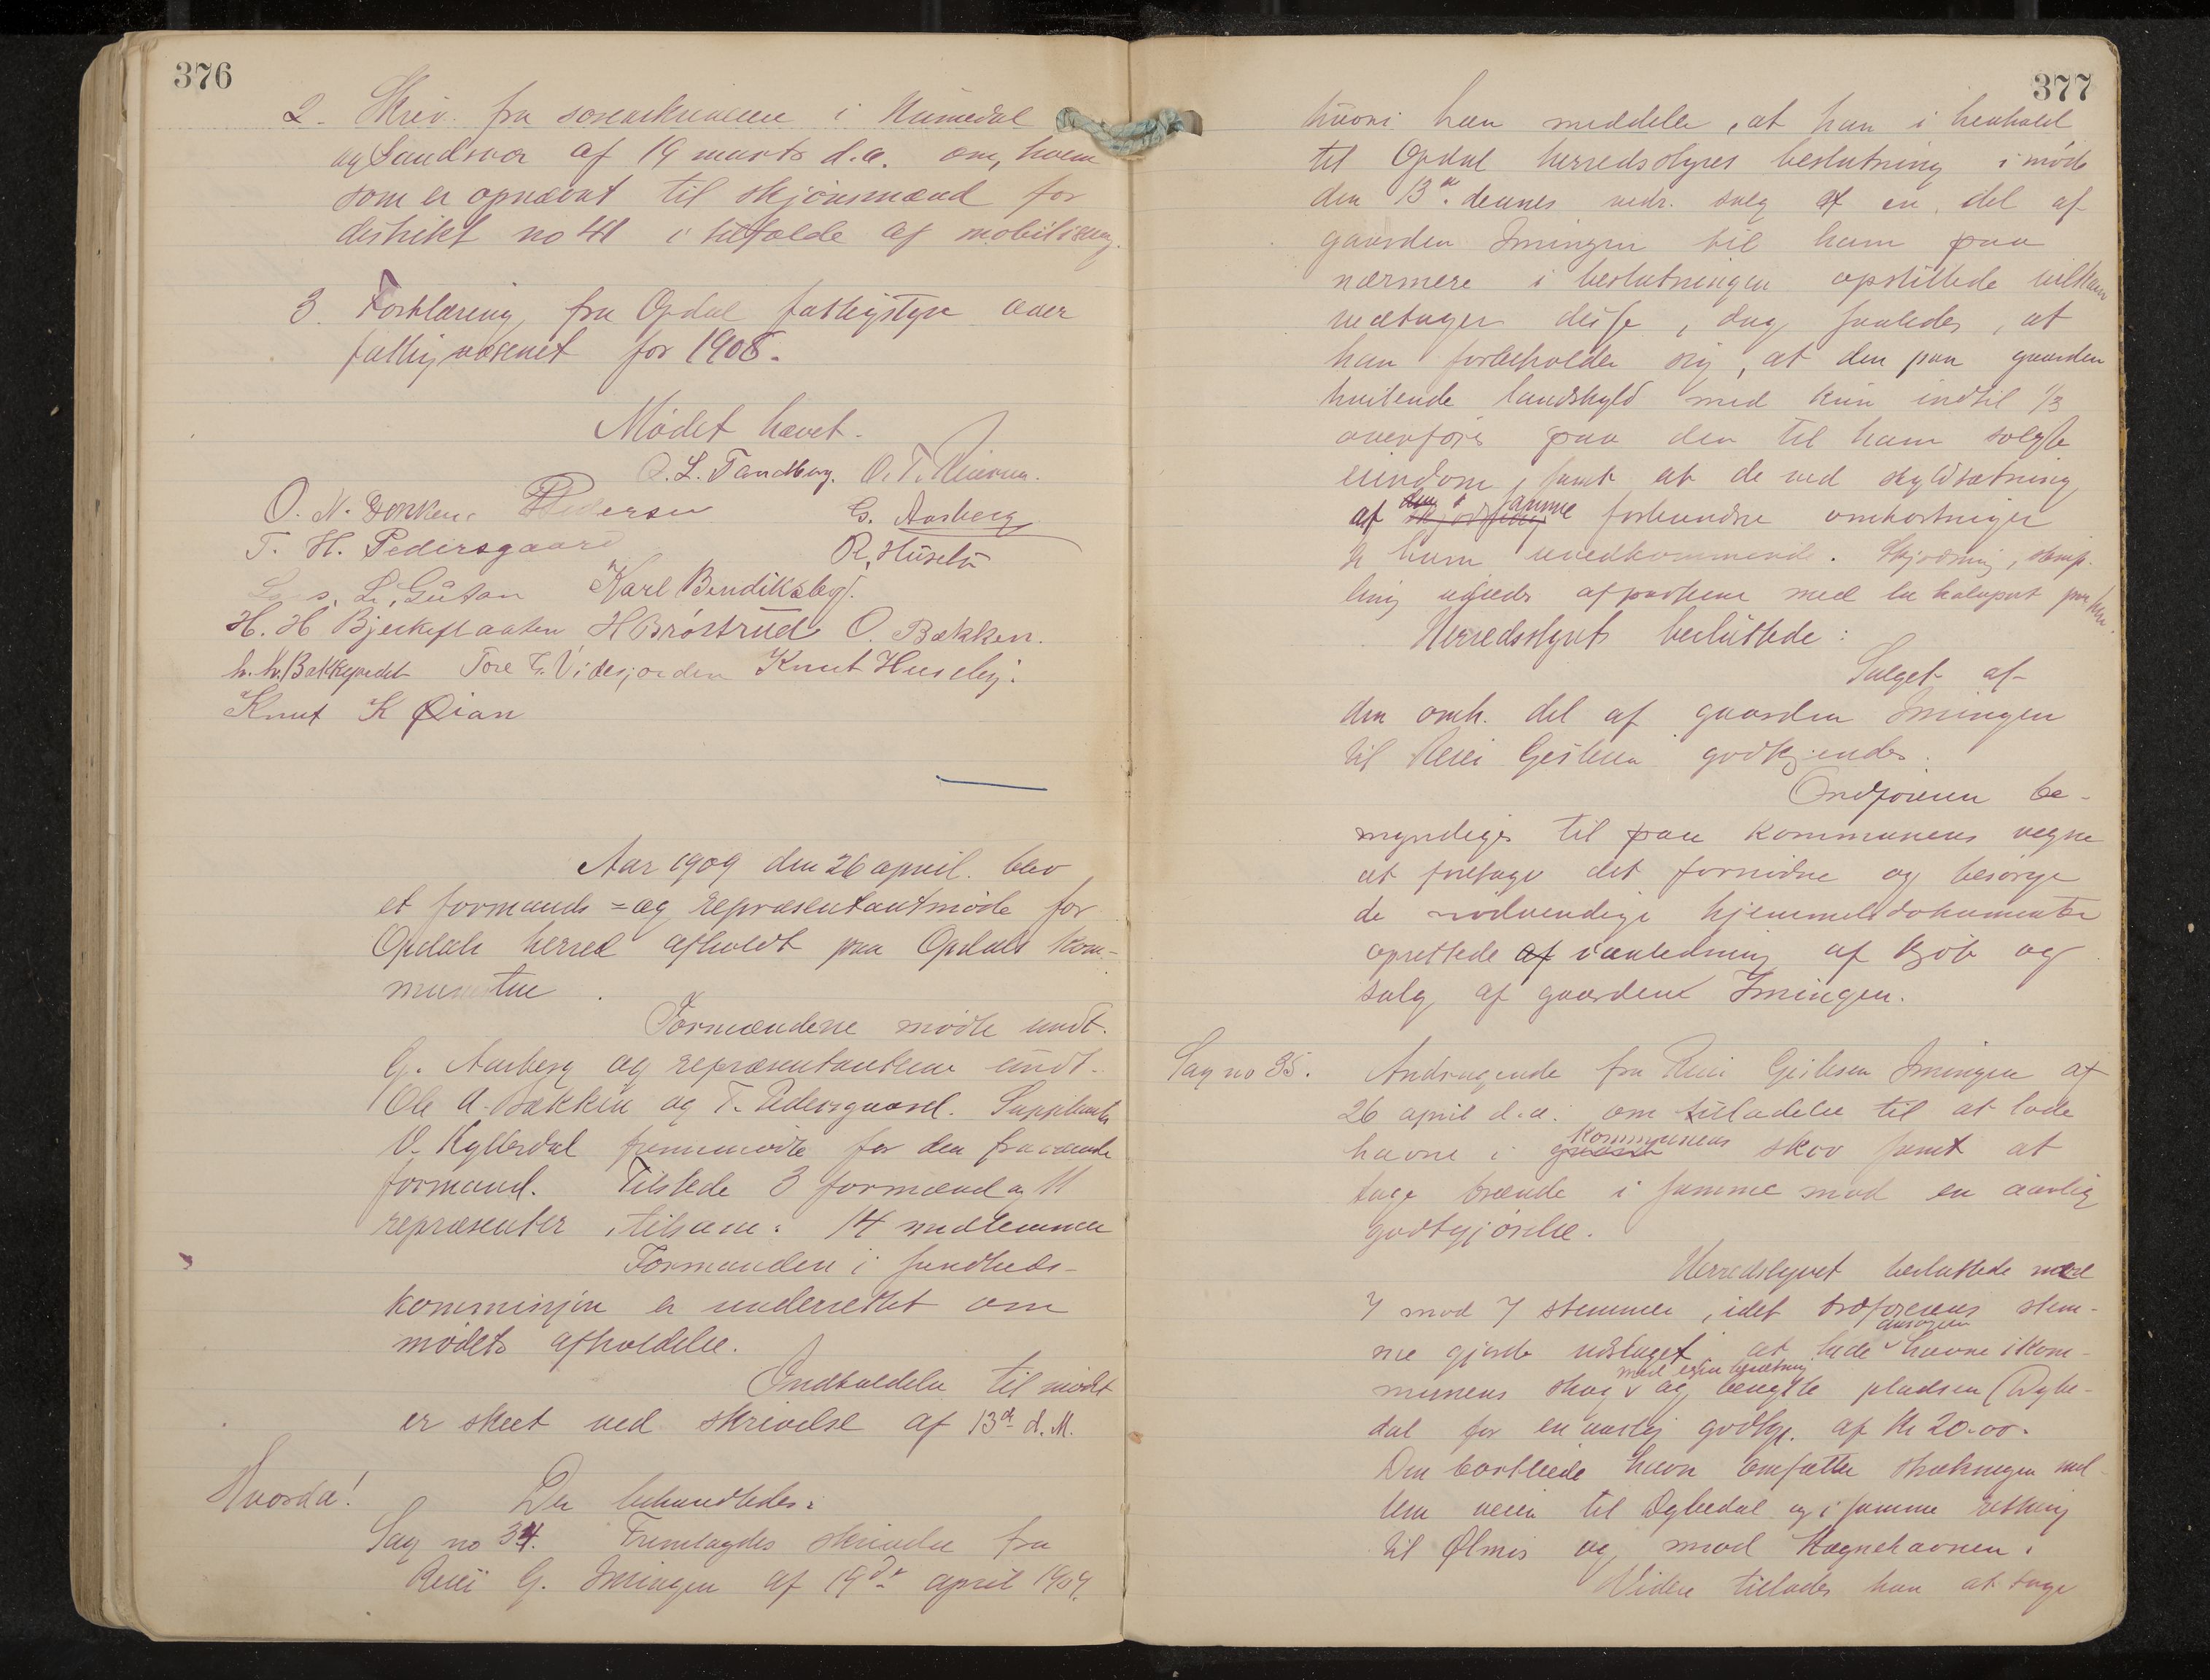 376
2. Skriv. fra sorenskriveren i Numedal
og Sandsvær af 19 marts d.a. om, hvem
som er opnævnt til skjønsmænd for
distrikt no 41 i tilfælde af mobilisering.
3. Forklaring fra Opdal fattigstyre over
fattigvæsenet for 1908.
Mødet hævet.
O. L. Tandberg. O. T.
O. N. Pedersen G. Aasberg
T. H. Pedersgaard R. Huseby
L. Gutan Karl Bendiksby.
H. H Bjerkeflaaten H Brøstrud O. Bækken.
Tore G. Videsjorden Knut Huseby.
Knut K Øian
Aar 1909 den 26 april. blev
et formands = og repræsentantmøde for
Opdals herred afholdt paa Opdals kom-
munstue.
Formændene mødte undt.
G. Aasberg og repræsentanterne undt.
Ole A. Bækken og T. Pedersgaard. Suppleanten
O. Kylledal fremmødte for den fraværende
formand. Tilstede 3 formænd og 11
repræsenter, tilsam: 14 medlemmer
Formanden i sundheds-
kommissjon er underrettet om
mødets afholdelse.
Indkaldelse til mødet
er skeet ved skrivelse af 13de d. M.
Hvorda! Der behandledes:
Sag no 34. Fremlagdes skrivelse fra
G. Imingen af 19de april 1909.
377
hvori han meddeler, at han i henhold
til Opdal herredsstyres beslutning i møde
den 13de dennes vedr. salg af en del af
gaarden Imingen til ham paa
nærmere i beslutningen opstillede vilkaar
vedtager disse, dog saaledes, at
han forbeholder sig, at den paa gaarden
hvilende landskyld med kun indtil 1/3
overføres paa den til ham solgte
eiendom, samt at de ved skyldsætning
af samme forbundne omkostninger
er ham uvedkommende. Skjødning, stemp-
ling udreds af parterne med en halvpart paa hver.
Herredsstyret besluttede:
Salget af
den omh. del af gaarden Imingen
til Geilesen godkjendes.
Ordføreren be-
myndiges til paa kommunens vegne
at foretage det fornødne og besørge
de nødvendige hjemmelsdokumenter
oprettede af i anledning af kjøb og
salg af gaarden Imingen.
Sag no 35. Andragende fra Geilesen Imingen af
26 april d.a. om tilladelse til at lade
havne i kommunens skov samt at
tage brænde i samme mod en aarlig
godtgjørelse.
Herredsstyret besluttede med
7 mod 7 stemmer, idet ordførerens stem-
me gjorde udslaget, at lade havne i kom-
munens skog med egen besætning og benytte pladsen (Dybe-
dal for en aarlig godtgj. af kr 20.00.
Den bortleiede havn omfatter strækningen mel-
lem veien til Dybedal og i samme retning
til Ølmis og mod Hægnehavnen.
Videre tillades han at tage